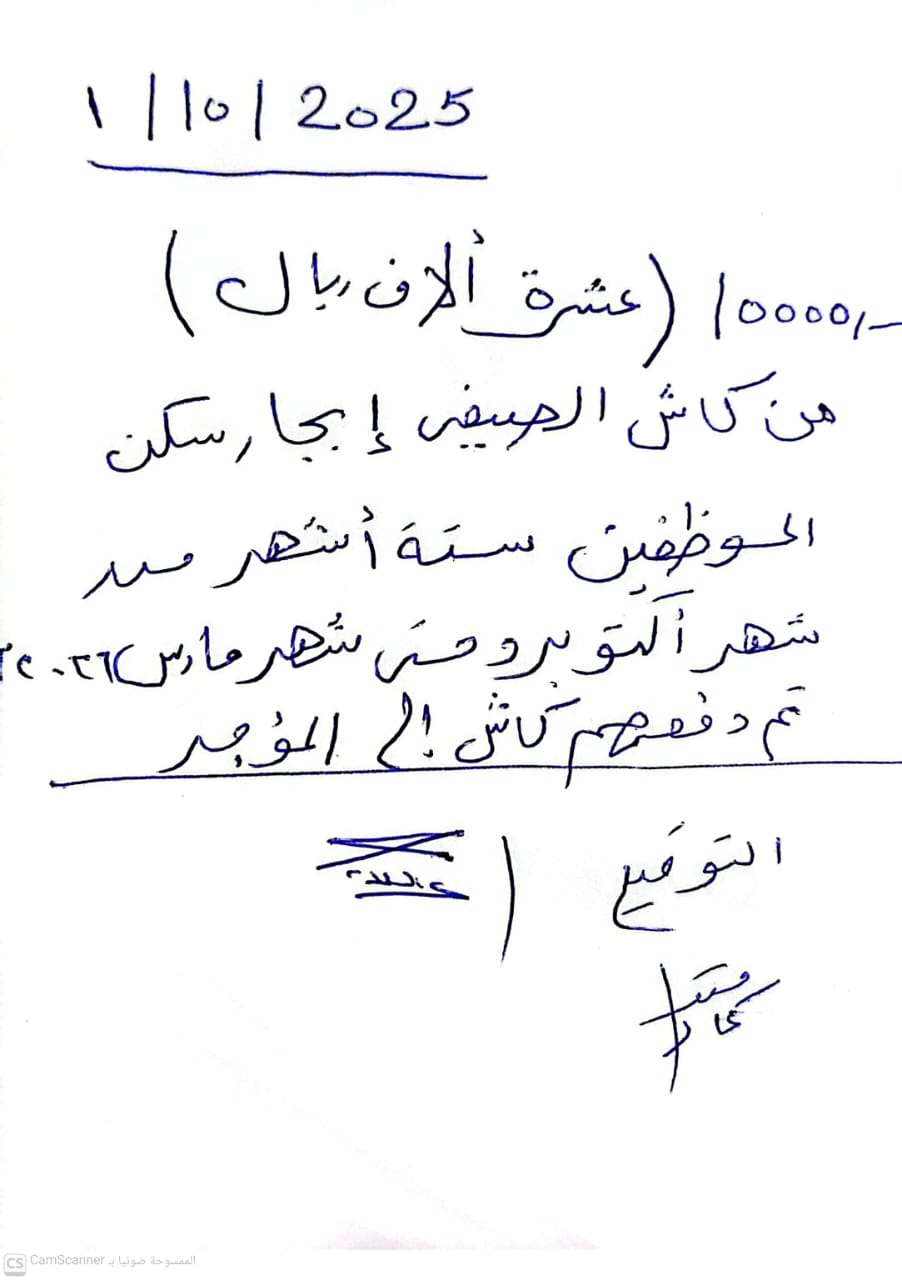 ١ / ١٥ / 2025
10000,- (عشرة ألاف ريال)
من كاش الصيفي إيجار سكن
الموظفين ستة أشهر من
شهر أكتوبر وحتى شهر مارس ٢٠٢٦
تم دفعهم كاش إلى المؤجر
التوقيع /
الممسوحة ضوئيا بـ CamScanner